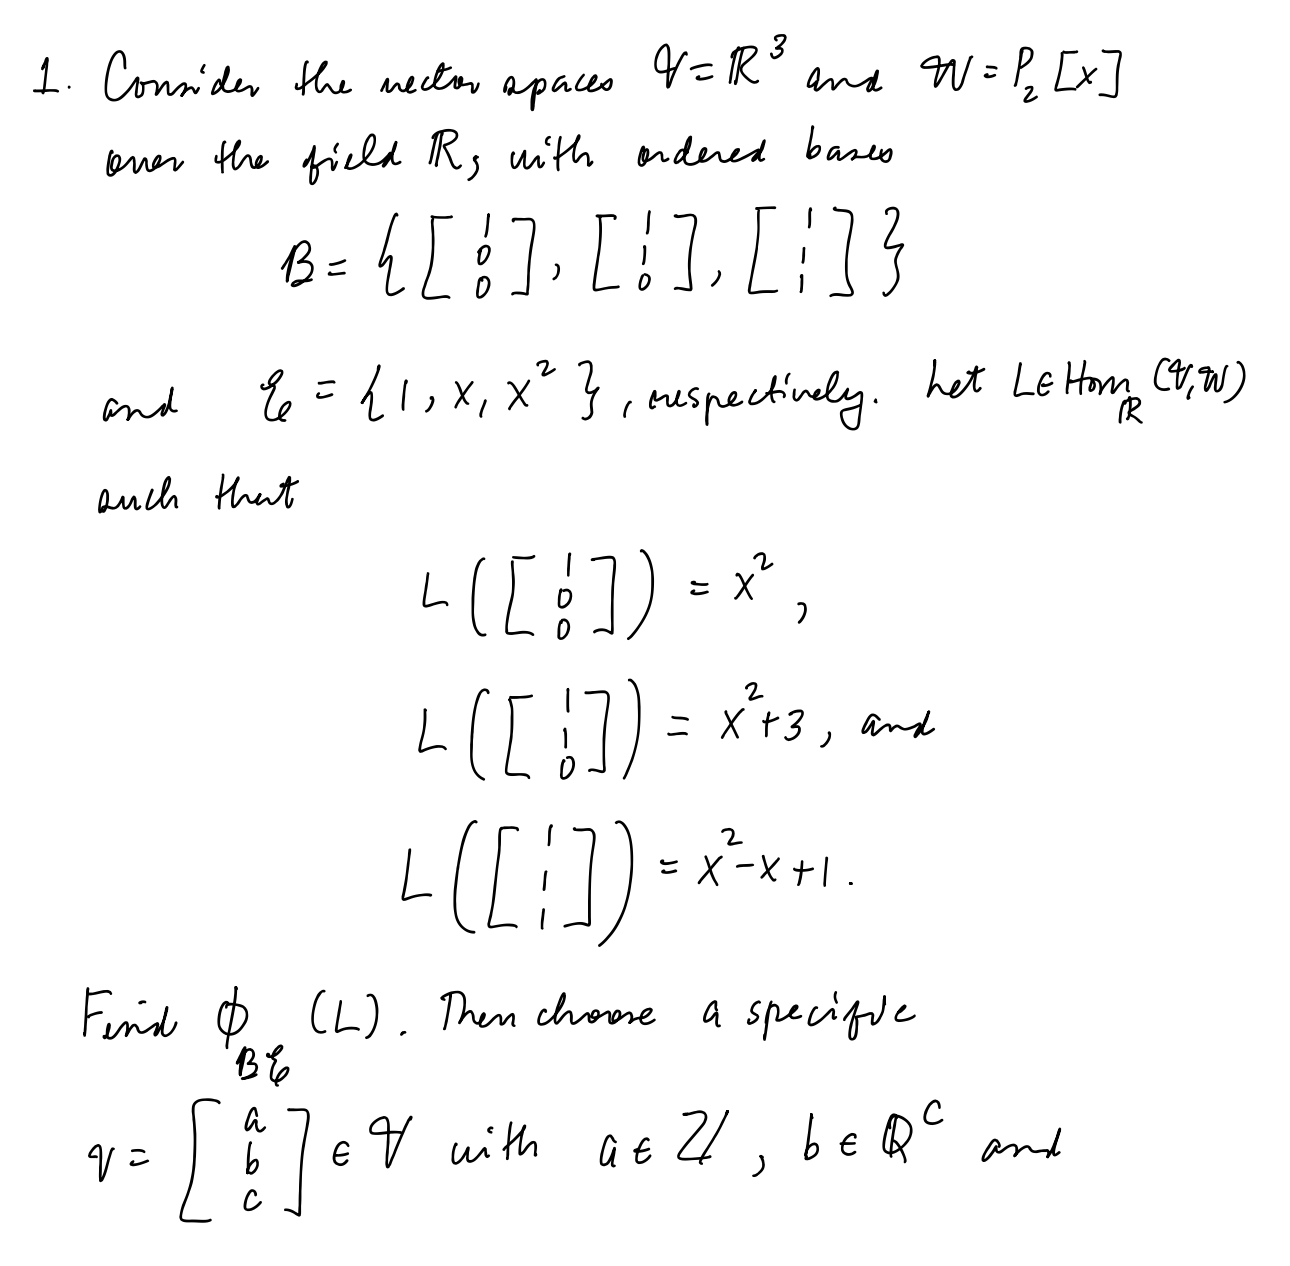 1. Consider the vector spaces V = ℝ³ and W = P₂[x]
over the field ℝ, with ordered bases
B = {[1 0 0], [1 1 0], [1 1 1]}
and ℰ = {1, x, x²}, respectively. Let L ∈ Hom_ℝ(V, W)
such that
L([1 0 0]) = x²,
L([1 1 0]) = x² + 3, and
L([1 1 1]) = x² - x + 1.
Find ϕ_Bℰ (L). Then choose a specific
v = [a b c] ∈ V with a ∈ ℤ, b ∈ ℚ^c and